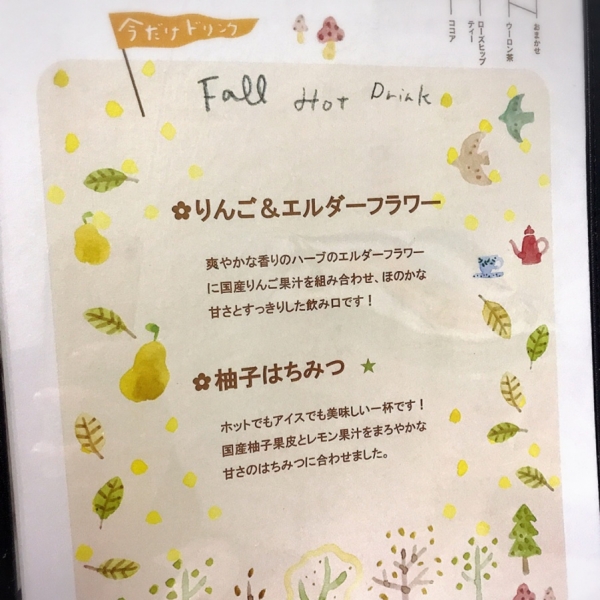 今だけドリンク
おまかせ
ウーロン茶
ローズヒップ
ティー
ココア
Fall Hot Drink
りんご&エルダーフラワー
爽やかな香りのハーブのエルダーフラワー
に国産りんご果汁を組み合わせ、ほのかな
甘さとすっきりした飲み口です！
柚子はちみつ
ホットでもアイスでも美味しい一杯です！
国産柚子果皮とレモン果汁をまろやかな
甘さのはちみつに合わせました。